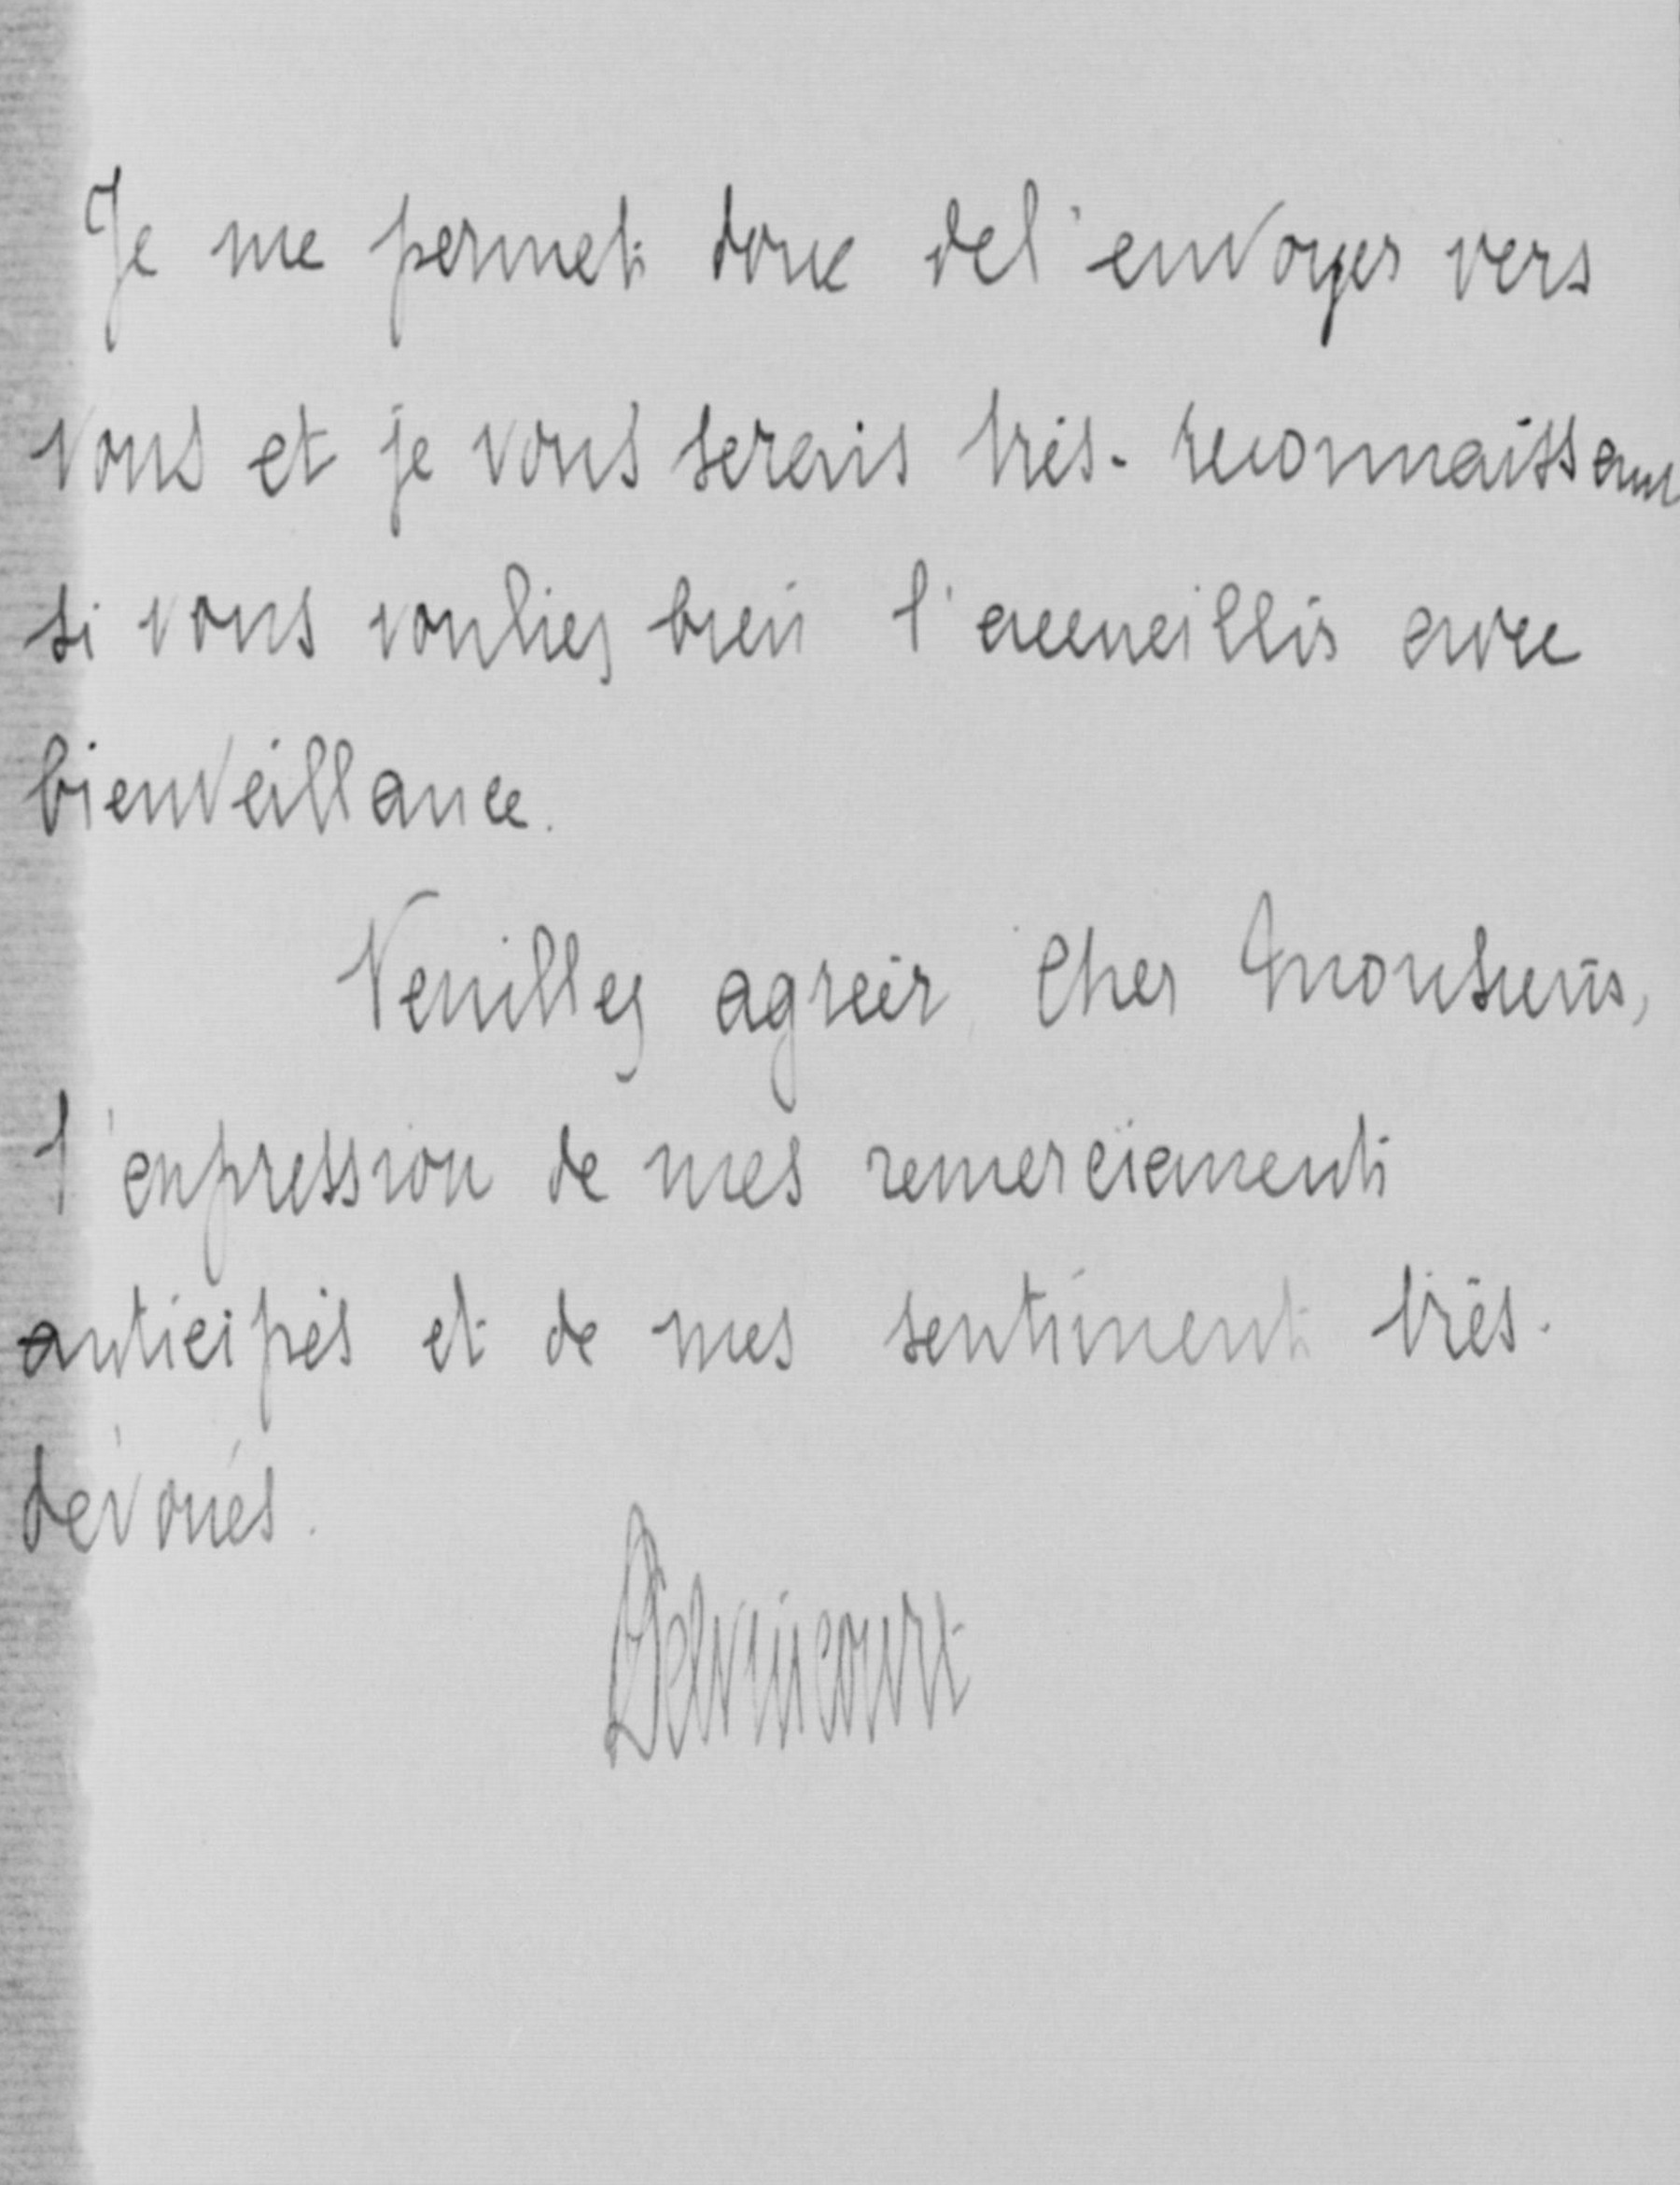 Je me permets donc de l'envoyer vers
vous et je vous serais très-reconnaissant
si vous vouliez bien l'accueillir avec
bienveillance.
Veuillez agréer Cher Monsieur,
l'expression de mes remerciements
anticipés et de mes sentiments très-
dévoués.
Delvincourt